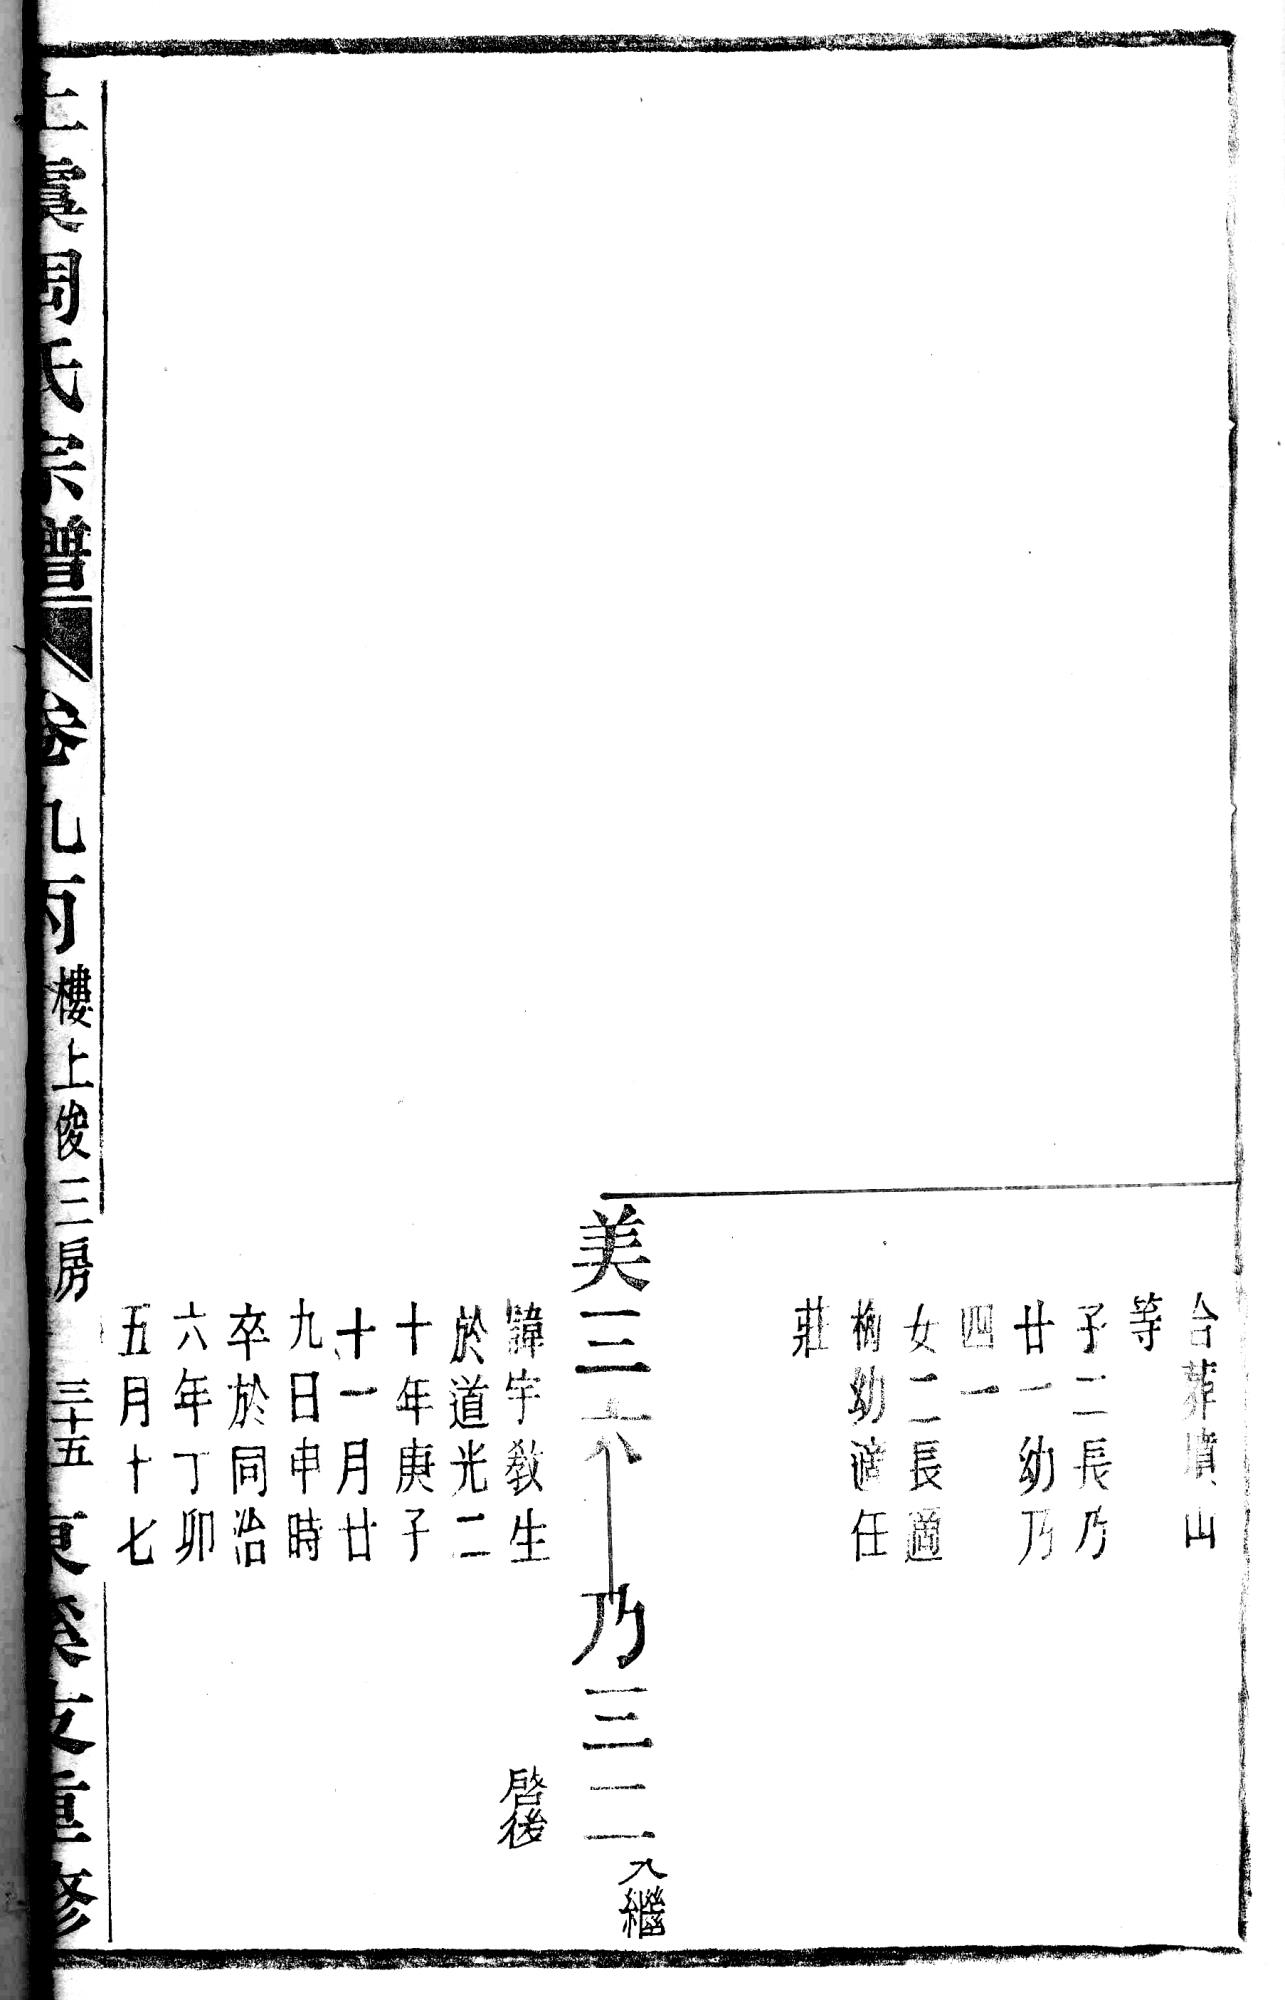 合葬墳山
等
子二長乃
廿一幼乃
四一
女二長適
梅幼適任
莊
美三六 乃三三 入繼
諱宇教生 啓後
於道光二
十年庚子
十一月廿
九日申時
卒於同治
六年丁卯
五月十七
上虞周氏宗譜 卷九丙 樓上俊三房 三十五 東系支重修